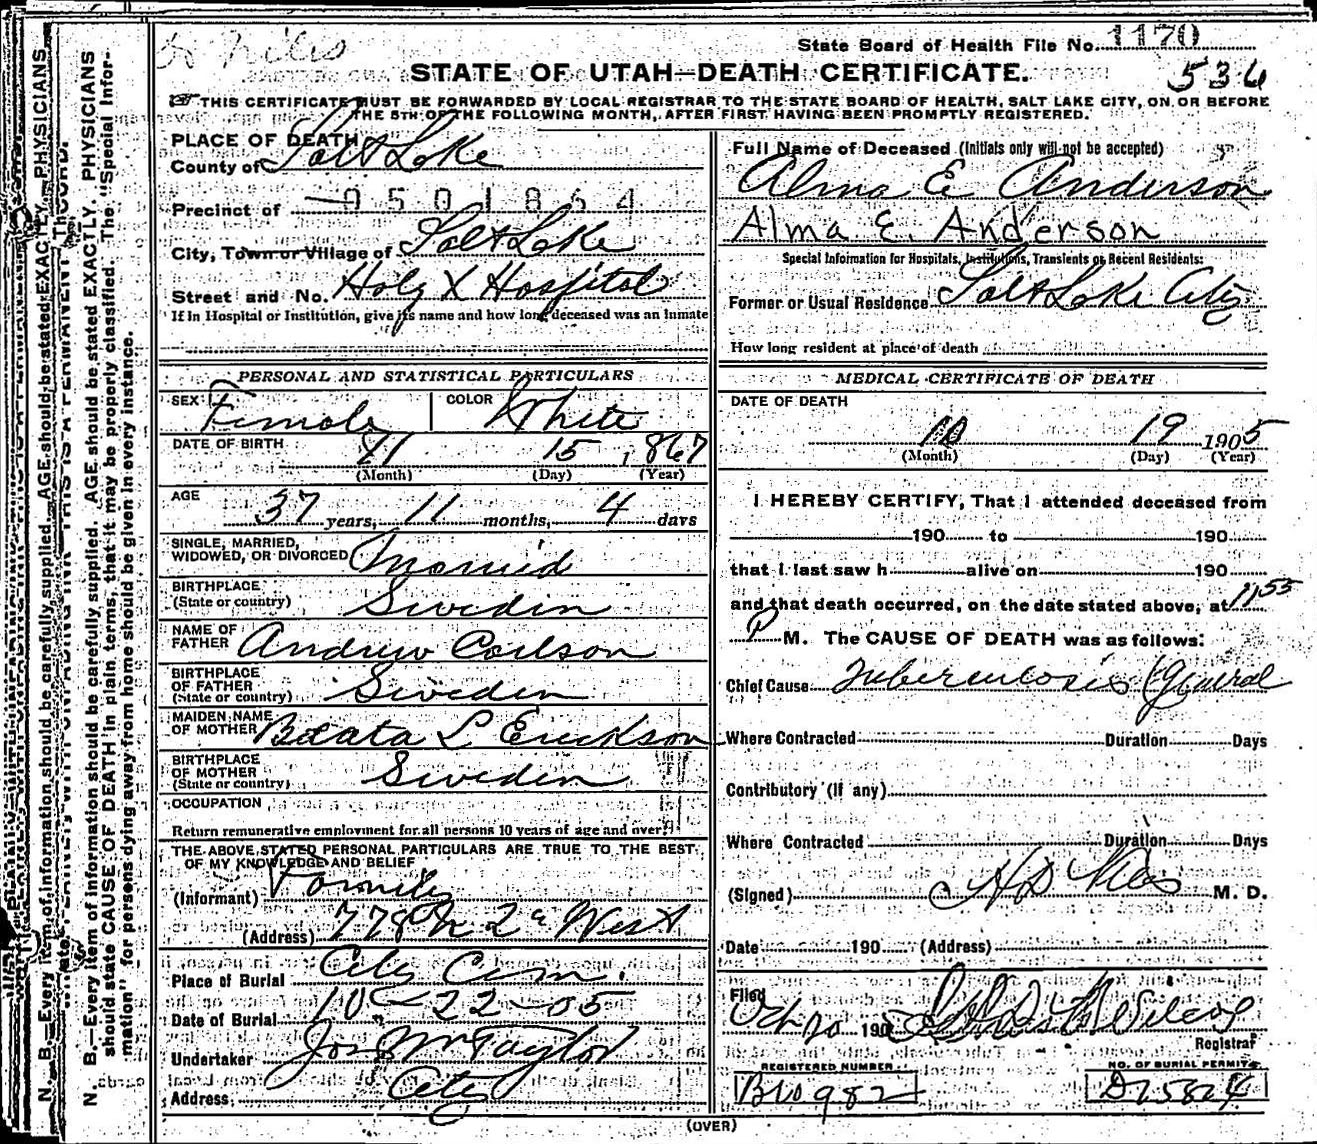 State Board of Health File No. 1170
536
STATE OF UTAH—DEATH CERTIFICATE.
THIS CERTIFICATE MUST BE FORWARDED BY LOCAL REGISTRAR TO THE STATE BOARD OF HEALTH, SALT LAKE CITY, ON OR BEFORE
THE 5TH OF THE FOLLOWING MONTH, AFTER FIRST HAVING BEEN PROMPTLY REGISTERED.
PLACE OF DEATH
County of Salt Lake
Precinct of 0501864
City, Town or Village of Salt Lake
Street and No. Holy X Hospital
If in Hospital or Institution, give its name and how long deceased was an inmate
PERSONAL AND STATISTICAL PARTICULARS
SEX Female COLOR White
DATE OF BIRTH 11 15 1867
(Month) (Day) (Year)
AGE
37 years, 11 months, 4 days
SINGLE, MARRIED,
WIDOWED, OR DIVORCED Married
BIRTHPLACE
(State or country) Sweden
NAME OF
FATHER Andrew Carlson
BIRTHPLACE
OF FATHER
(State or country) Sweden
MAIDEN NAME
OF MOTHER Beata L Erickson
BIRTHPLACE
OF MOTHER
(State or country) Sweden
OCCUPATION
Return remunerative employment for all persons 10 years of age and over
THE ABOVE STATED PERSONAL PARTICULARS ARE TRUE TO THE BEST
OF MY KNOWLEDGE AND BELIEF
(Informant) Family
(Address) 778 N 2d West
Place of Burial City Cem.
Date of Burial 10-22-05
Undertaker Jos Wm Taylor
Address, City
Full Name of Deceased (Initials only will not be accepted)
Alma E Anderson
Alma E. Anderson
Special Information for Hospitals, Institutions, Transients or Recent Residents:
Former or Usual Residence Salt Lake City
How long resident at place of death
MEDICAL CERTIFICATE OF DEATH
DATE OF DEATH
10 19 1905
(Month) (Day) (Year)
I HEREBY CERTIFY, That I attended deceased from
190 to 190
that I last saw h alive on 190
and that death occurred, on the date stated above, at 11 55
P M. The CAUSE OF DEATH was as follows:
Chief Cause Tuberculosis (General
Where Contracted Duration Days
Contributory (if any)
Where Contracted Duration Days
(Signed) H D Niles M. D.
Date 190 (Address)
Filed
Oct 20 1905 Wilcox
Registrar
REGISTERED NUMBER NO. OF BURIAL PERMIT
B10982 D25824
(OVER)
N. B.—Every item of information should be carefully supplied. AGE should be stated EXACTLY. PHYSICIANS
should state CAUSE OF DEATH in plain terms, that it may be properly classified. The "Special Infor-
mation" for persons dying away from home should be given in every instance.
N. B.—Every item of information should be carefully supplied. AGE should be stated EXACTLY. PHYSICIANS